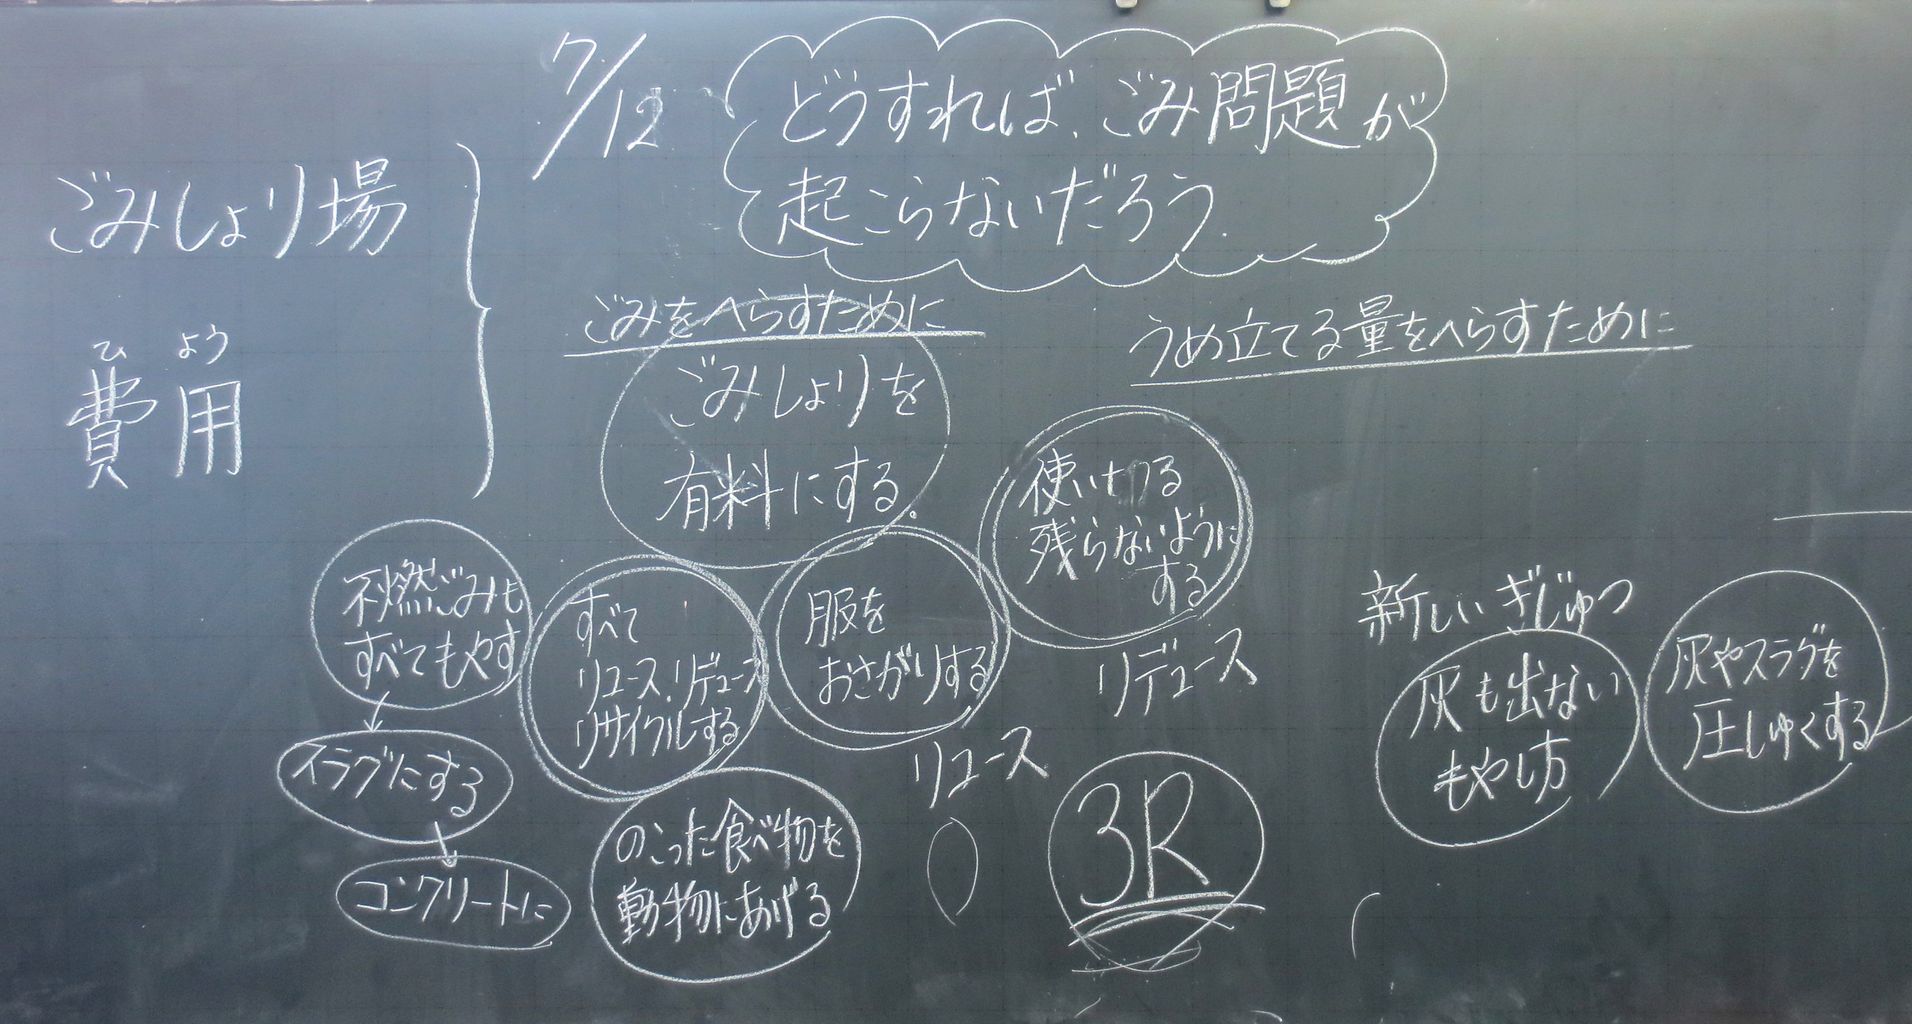 7/12
どうすれば、ごみ問題が
起こらないだろう。
ごみしょり場
ひよう
費用
ごみをへらすために
ごみしょりを
有料にする。
使いきる
残らないように
する
リデュース
不燃ごみも
すべてもやす
スラグにする
コンクリートに
すべて
リユース、リデュース
リサイクルする
服を
おさがりする
リユース
のこった食べ物を
動物にあげる
3R
うめ立てる量をへらすために
新しいぎじゅつ
灰も出ない
もやし方
灰やスラグを
圧しゅくする